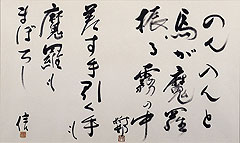 のんのんと
馬が魔羅
振る霧の中
差す手引く手も
魔羅も
まぼろし